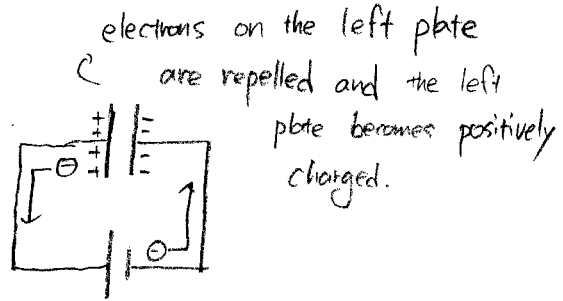 electrons on the left plate
are repelled and the left
plate becomes positively
charged.